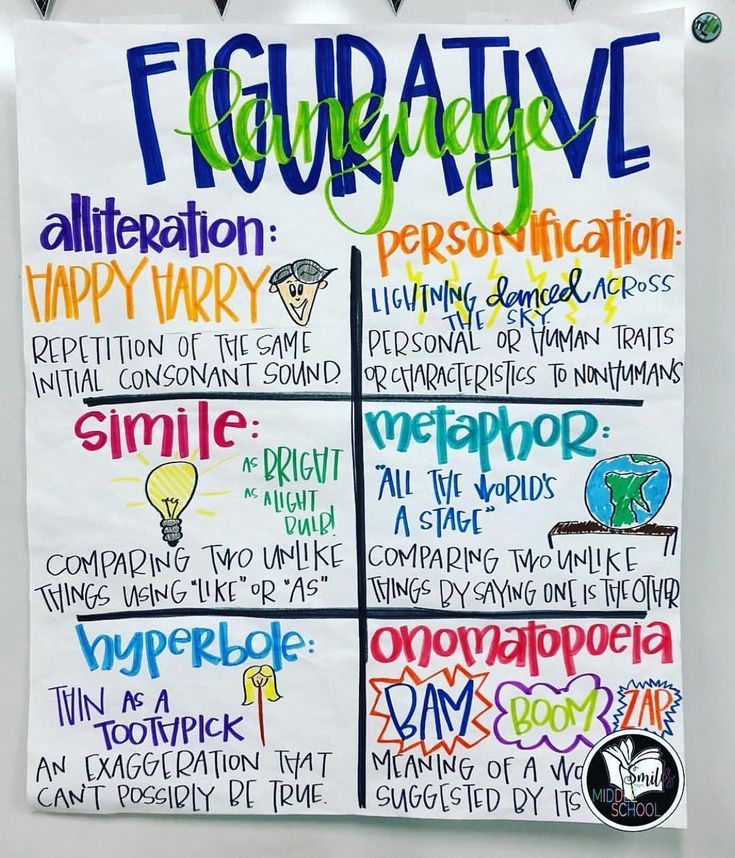 FIGURATIVE
language
alliteration:
HAPPY HARRY
REPETITION OF THE SAME
INITIAL CONSONANT SOUND.
personification:
LIGHTNING danced ACROSS
THE SKY.
PERSONAL OR HUMAN TRAITS
OR CHARACTERISTICS TO NONHUMANS
simile:
AS BRIGHT
AS A LIGHT
BULB!
COMPARING TWO UNLIKE
THINGS USING "LIKE" OR "AS"
metaphor:
"ALL THE WORLD'S
A STAGE"
COMPARING TWO UNLIKE
THINGS BY SAYING ONE IS THE OTHER
hyperbole:
THIN AS A
TOOTHPICK
AN EXAGGERATION THAT
CAN'T POSSIBLY BE TRUE.
onomatopoeia
BAM BOOM ZAP
MEANING OF A
SUGGESTED BY ITS
Smiles
MIDDLE
SCHOOL